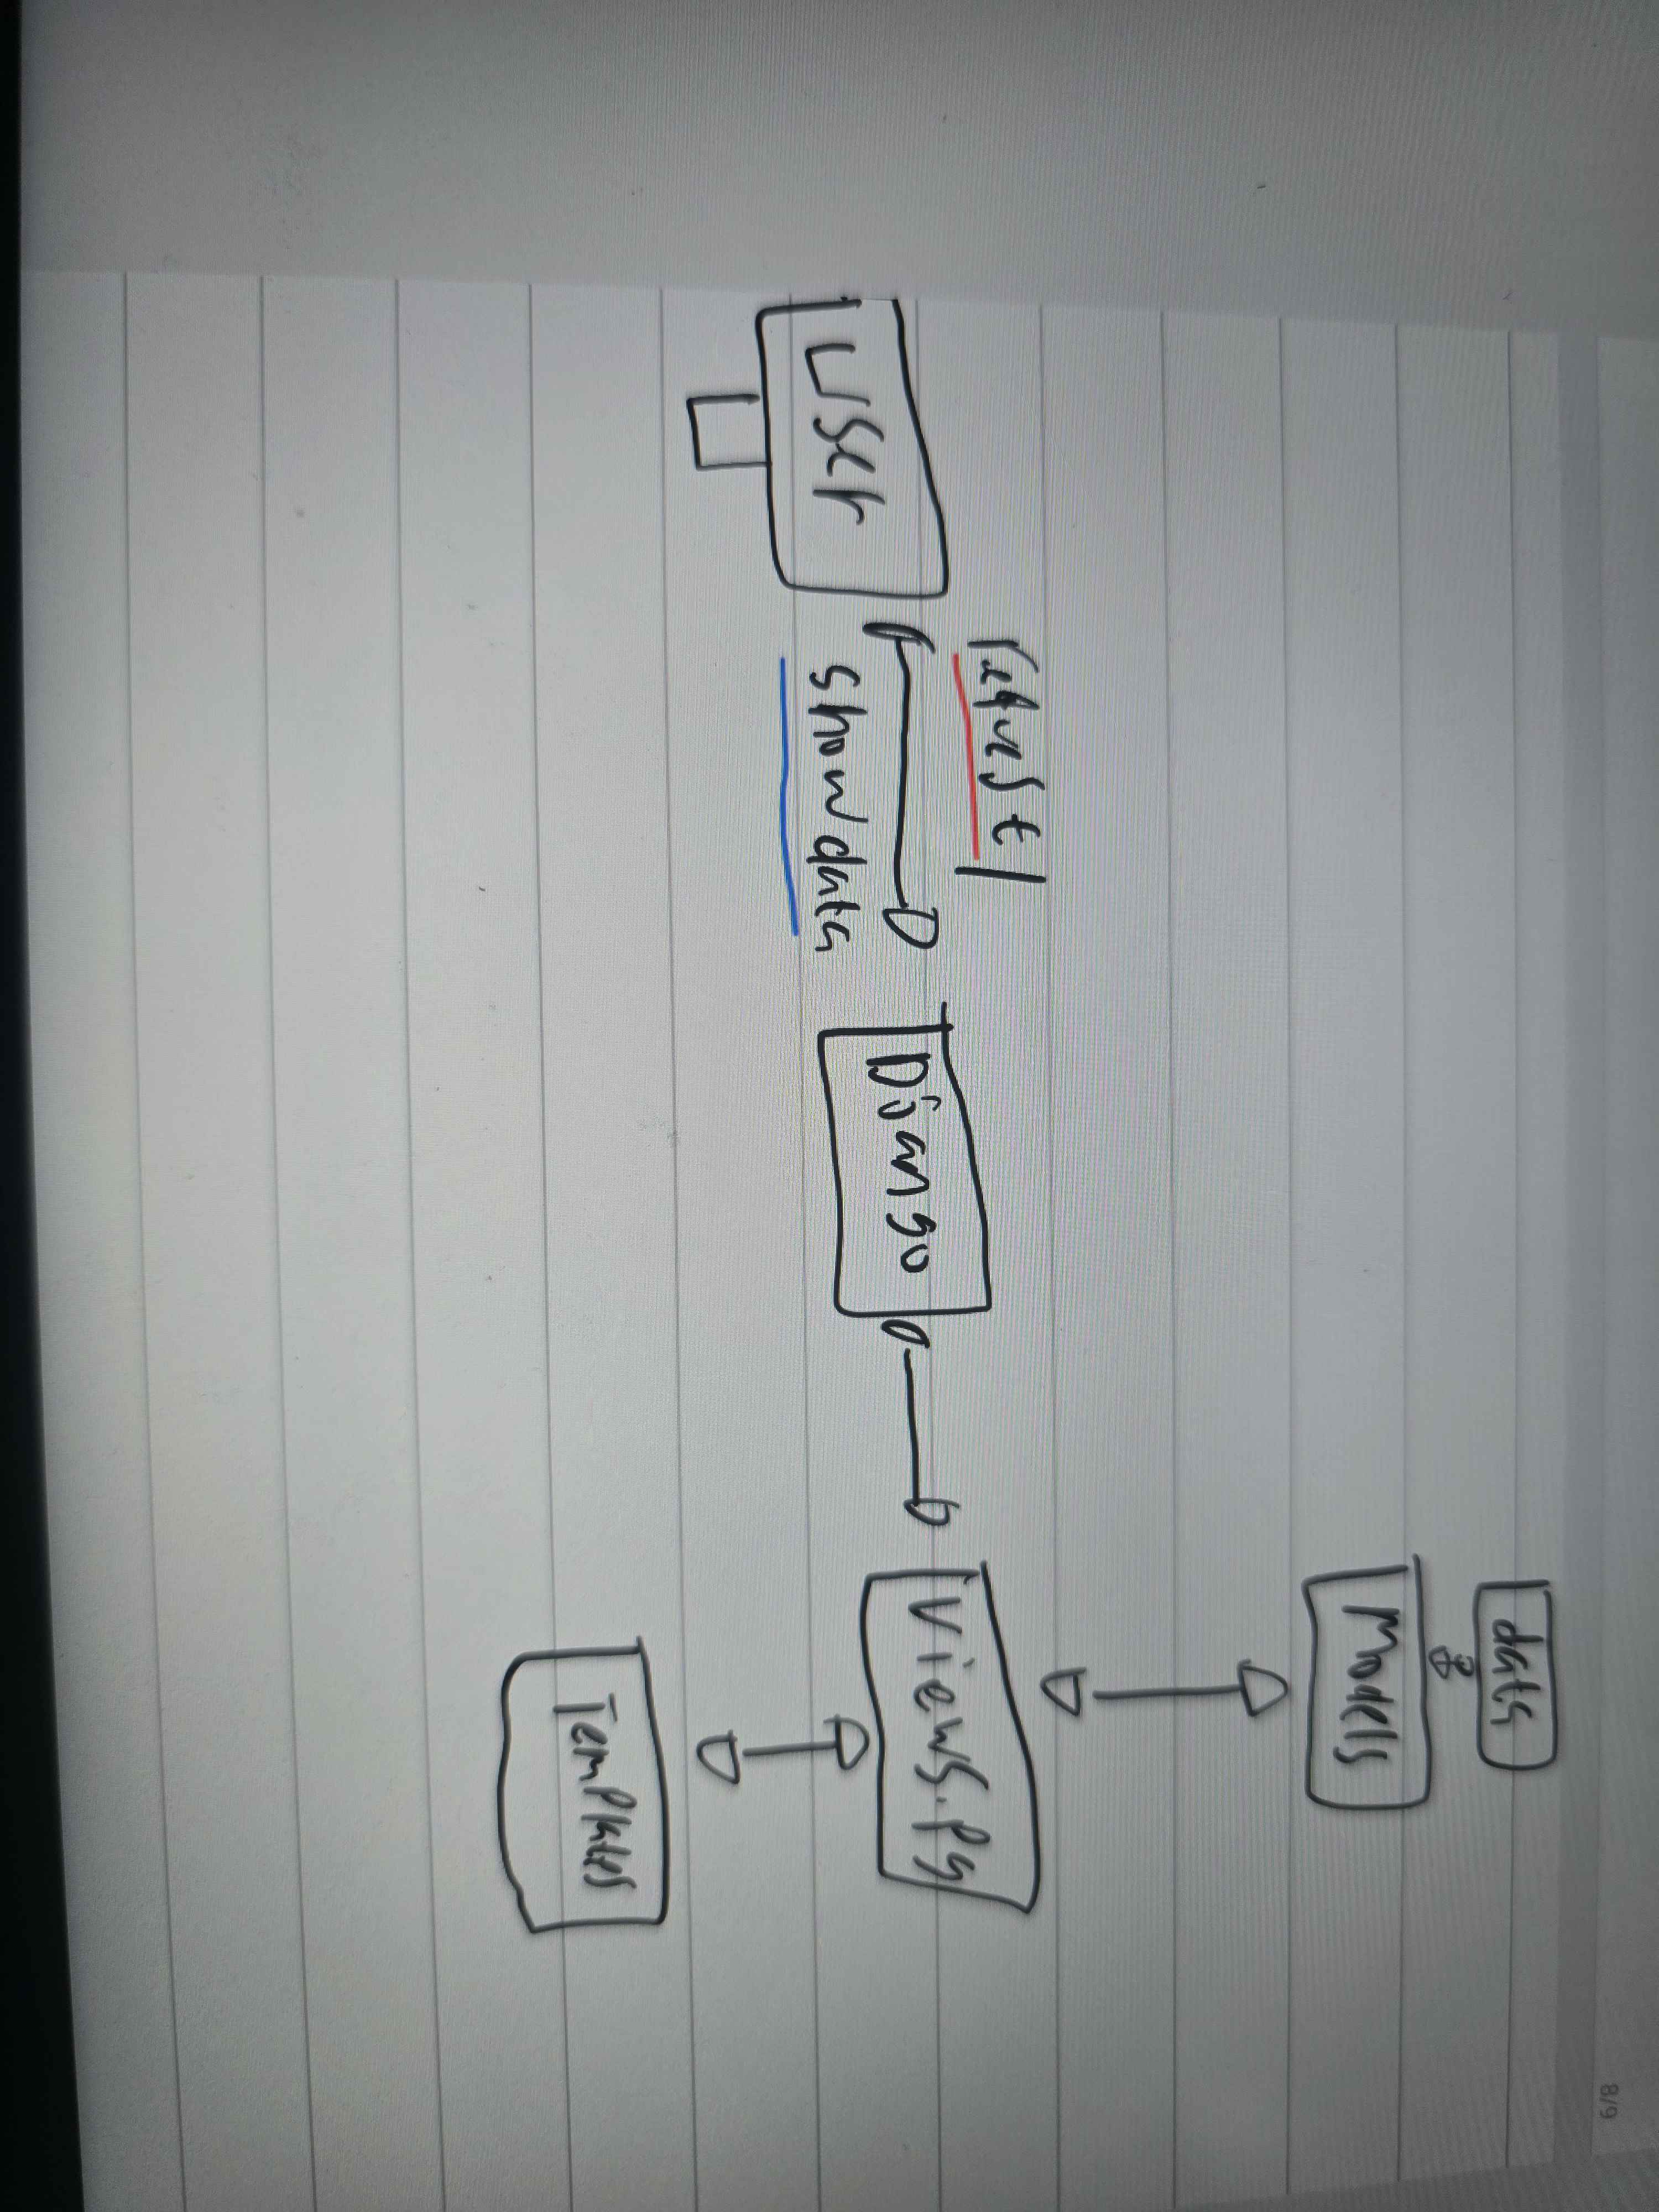 8/9
data
Models
request/
User
show data
Django
Views.py
Templates